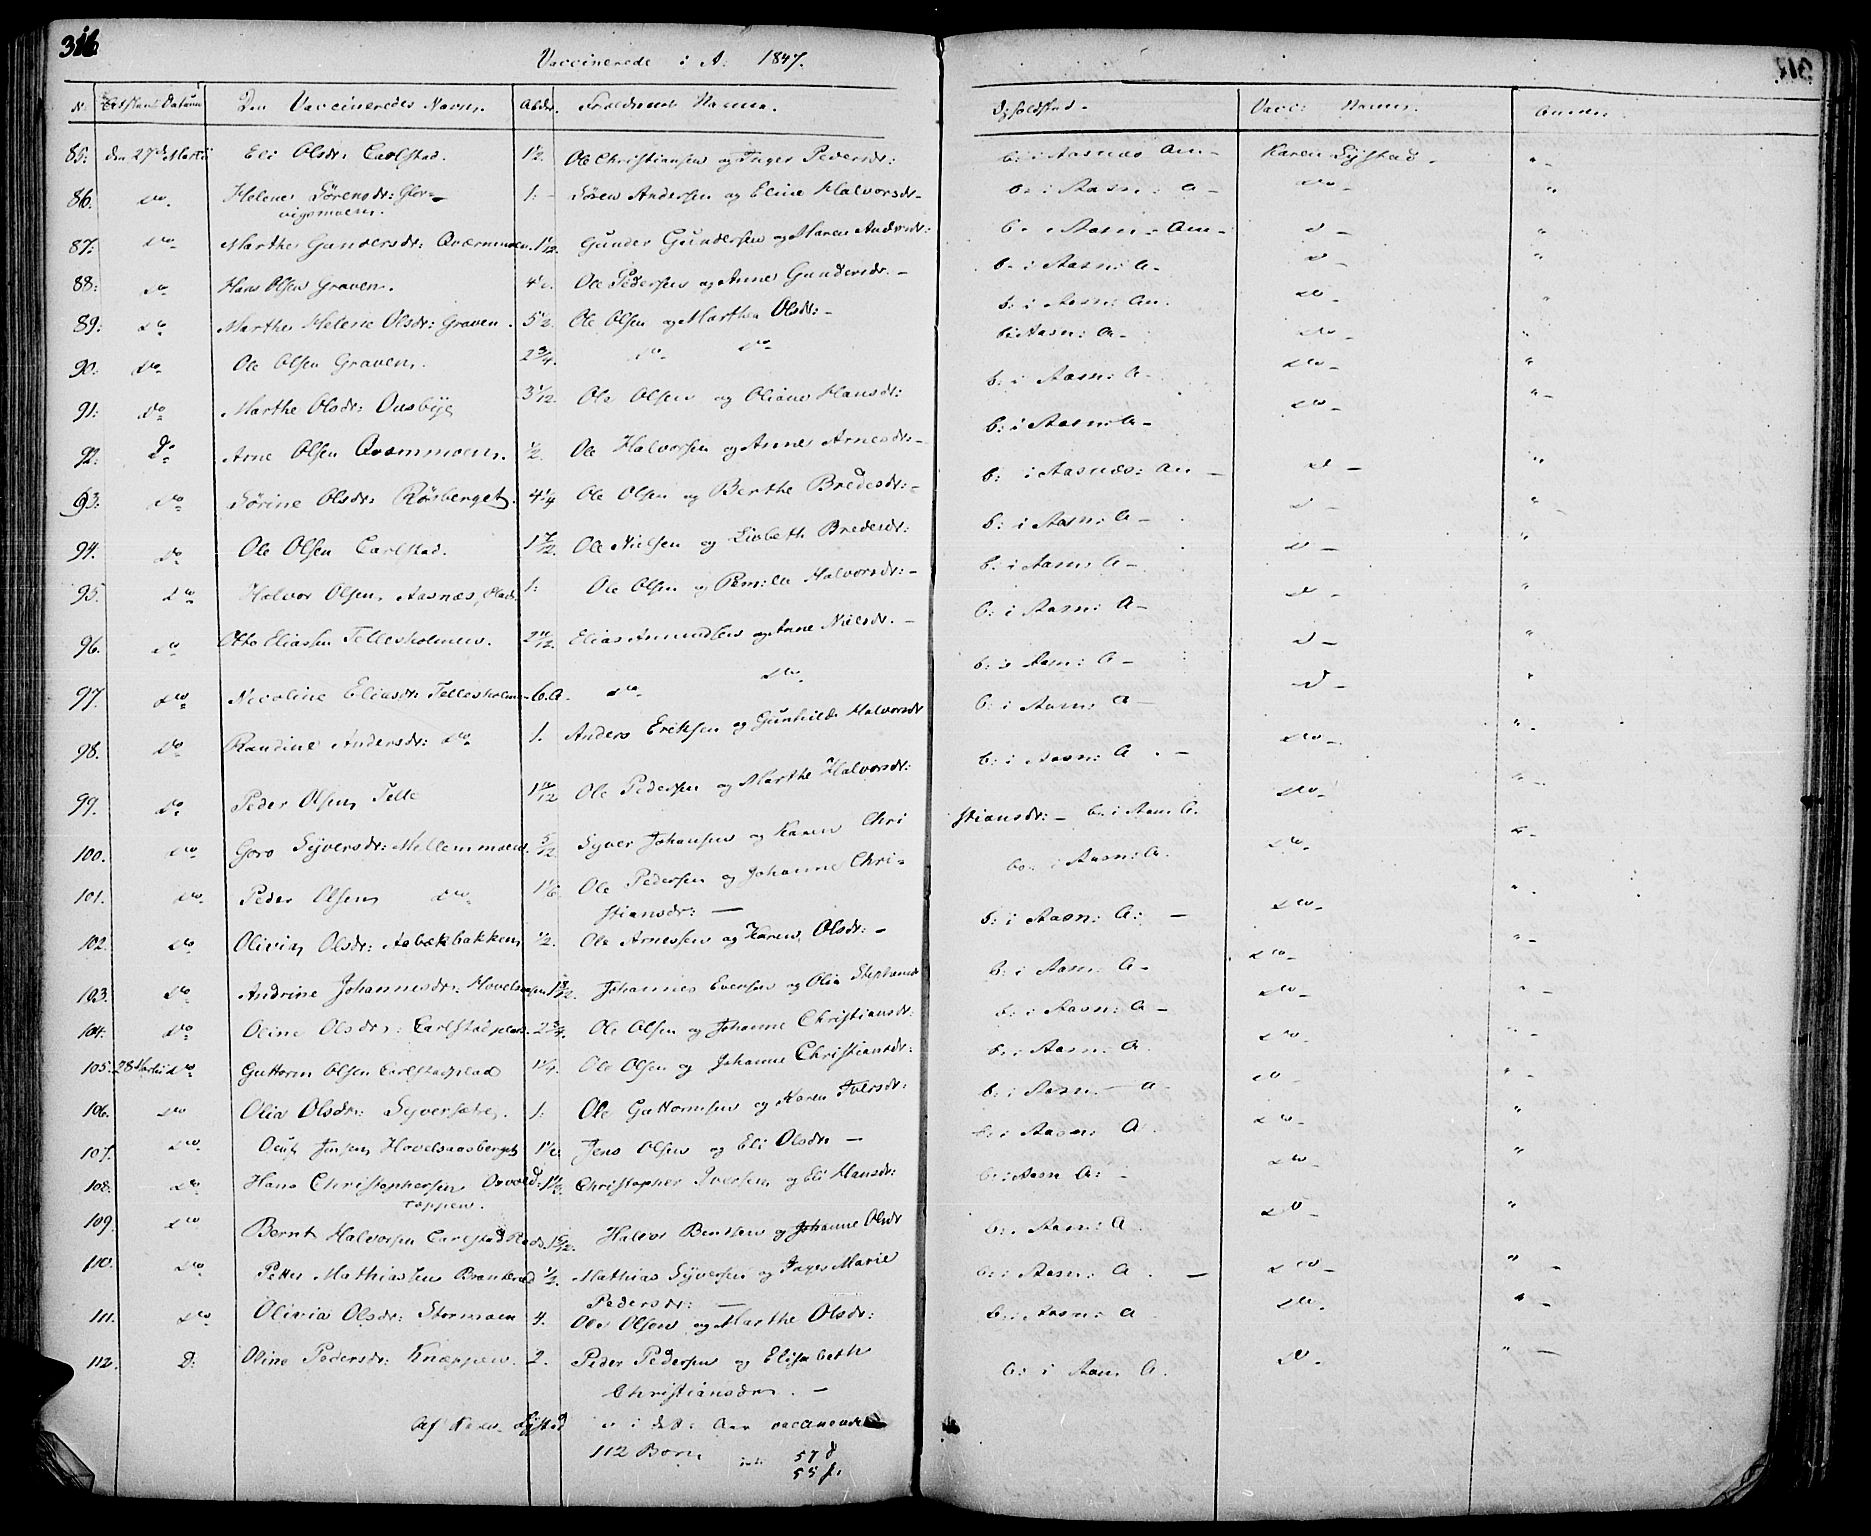 316 Vaccinerede i A: 1847. 317.
N. Datum Den Vaccineredes Navn. Alder. Forældrenes Navne. Opholdssted. Vacc: Navn.
85: den 27de Martii Eli Olsdr: Carlstad. 1/2. Ole Christiansen og Inger Pedersdr: b: i Aasnæs An– Karen Lystad. "–
86. do. Helene Sörensdr: Glor–
vigsmoen. 1: – Sören Andersen og Eline Halvorsdr– b: i Aasn: A – do – "
87: do. Marthe Gundersdr: Qværnmoen. 1 1/12. Gunder Gundersen og Maren Andersdr: b. i Aasn: An– d – "
88: do Hans Olsen Graven. Ole Pedersen og Anne Gundersdr. – b. i Aasn: A– d – "
89: do Marthe Helene Olsdr: Graven. 5 1/2. Ole Olsen og Marthea Olsdr: – b: i Aasn: An. do – "
90: do. Ole Olsen Graven. 2 3/4. do. do. b: i Aasn: A– do – "
91: do Marthe Olsdr: Ousbye 3 1/12. Ole Olsen og Oliane Hansdr: b: i Aasn: A– do – "
92: Do Arne Olsen Qvæmmoen. 1/2. Ole Halvorsen og Anne Arnesdr: – b: i Aasn: A– do – "–
93: do Sörine Olsdr: Rösberget. 4 1/4 Ole Olsen og Berthe Bredesdr: – b: i Aasnæs: An – d – "
94. do Ole Olsen Carlstad. 1 7/12. Ole Nielsen og Lisbeth Bredesdr: b: i Aasn: A – d – "
95. do Halvor Olsen, Aasnæs, Plads 1: Ole Olsen og Pernille Halvorsdr: – b: i Aasn: A– d – "
96. do Otto Eliassen Tellesholmen. 2 11/12. Elias Amundsen og Anne Nielsdr. – b: i Aasn: A – d – "
97. do Nicoline Eliasdr: Tellesholmen 6. A. do. do. b: i Aasn: A – d – "
98. do Randine Andersdr: do 1. Anders Eriksen og Gunhilde Halvorsdr b: i Aasn: A – d – "
99. do Peder Olsen Telle Ole Pedersen og Marthe Halvorsdr: b: i Aasn: A. – do – "–
100. do. Goro Syversdr: Mellemmoen. 5/12. Syver Johansen og Karen Chri
stiansdr: – b. i Aasn A. do – "–
101. do. Peder Olsen do. 1 1/6. Ole Pedersen og Johanne Chri–
stiansdr: – b. i Aasn: A. do – "–
102. do Olivia Olsdr: Aabækbakken 1/2. Ole Arnessen og Karen Olsdr: – b: i Aasn: A: – do – "–
103. do Andrine Johannesdr: Hovelsaasen Johannes Evensen og Olia b: i Aasn: A– do – "–
104. do Oline Olsdr: Carlstadplads. 2 3/4. Ole Olsen og Johanne Christiansdr: b: i Aasn: A – do – "–
105. 28 Martii do Guttorm Olsen Carlstadplad 1 1/4. Ole Olsen og Johanne Christiansdr: b: i Aasn: A. do – "–
106. do Olia Olsdr: Syversætre. 1: Ole Guttormsen og Karen Iversdr: b: i Aasn – A – do – "–
107. do. Jensen Hovelsaasberget 1 1/6 Jens Olsen og Eli Olsdr – b: i Aasn: A. do – "
108. do Hans Christophersen Opvold:
toppen. Christopher Iversen og Eli Hansdr: b: i Aasn A: – do – "
109. do Bernt Halvorsen Carlstad Plads. Halvor Bentsen og Johanne Olsdr b: i Aasn: A. do – "
110. do. Petter Mathiassen Branderud 1/2. Mathias Syversen og Inger Marie
Pedersdr: – b: i Aasn: A. – do – "–
111. do Olivia Olsdr: Stormoen 4. Ole Olsen og Marthe Olsdr: b: i Aasn: A do. "–
112. D: Oline Pedersdr: Knappen. 2. Peder Pedersen og Elisabeth
Christiansdr. – b: i Aasn A. do – "–
Af Karen Lystad er i dette Aar vaccinerede
112 Börn 57 d
55 p: